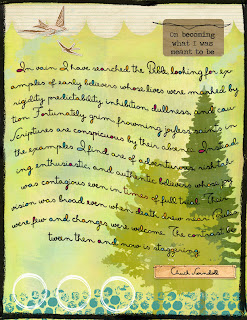 On becoming
what I was
meant to be
In vain I have searched the Bible, looking for ex-
amples of early believers whose lives were marked by
rigidity, predictability, inhibition, dullness, and cau-
tion. Fortunately, grim, frowning, joyless saints in
Scriptures are conspicuous by their absence. Instead
the examples I find are of adventurous, risk-tak-
ing, enthusiastic, and authentic believers whose joy
was contagious even in times of full trial. Their
vision was broad even when death drew near. Rules
were few and changes were welcome. The contrast be-
tween then and now is staggering.
Chuck Swindoll